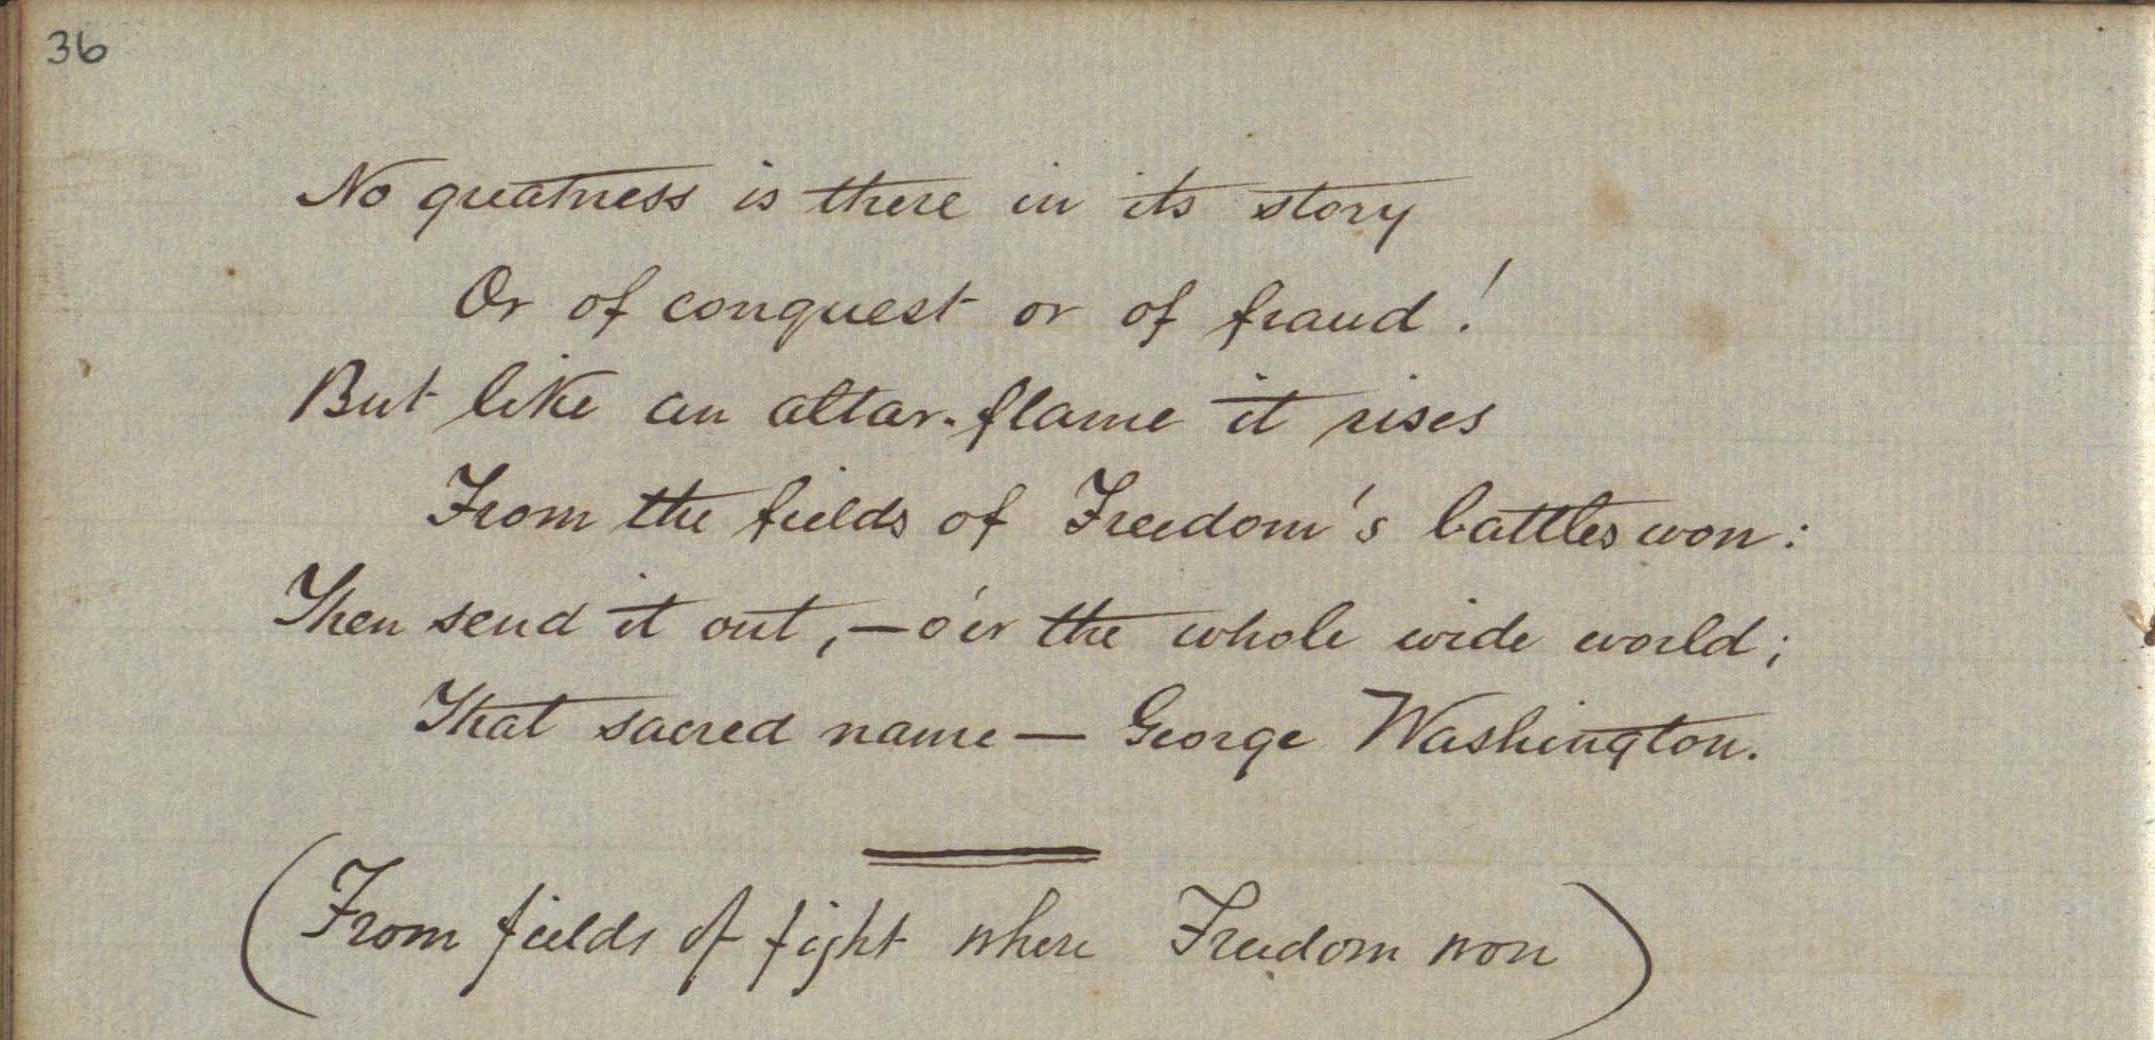 36
No greatness is there in its story
Or of conquest or of fraud!
But like an altar-flame it rises
From the fields of Freedom's battles won:
Then send it out,—o'er the whole wide world;
That sacred name — George Washington.
(From fields of fight where Freedom won)